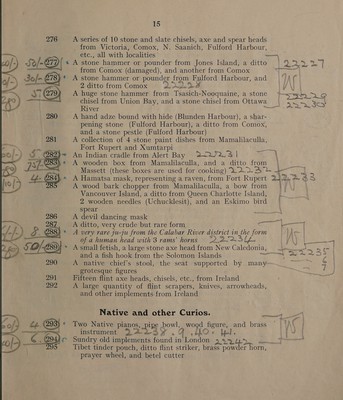 15
276 A series of 10 stone and slate chisels, axe and spear heads
from Victoria, Comox, N. Saanich, Fulford Harbour,
etc., all with localities
50/- 277 A stone hammer or pounder from Jones Island, a ditto
from Comox (damaged), and another from Comox
22227
30/- 278 A stone hammer or pounder from Fulford Harbour, and
2 ditto from Comox 22228
W
5 279 A huge stone hammer from Tsasich-Nooquaine, a stone
chisel from Union Bay, and a stone chisel from Ottawa
River
22229
22230
280 A hand adze bound with hide (Blunden Harbour), a shar-
pening stone (Fulford Harbour), a ditto from Comox,
and a stone pestle (Fulford Harbour)
281 A collection of 4 stone paint dishes from Mamalilaculla,
Fort Rupert and Numtarpi
5 282 An Indian cradle from Alert Bay 22231
283 A wooden box from Mamalilaculla, and a ditto from
Massett (these boxes are used for cooking) 22232
W
4 284 A Hamatsa mask, representing a raven, from Fort Rupert 22233
285 A wood bark chopper from Mamalilaculla, a bow from
Vancouver Island, a ditto from Queen Charlotte Island,
2 wooden needles (Uchucklesit), and an Eskimo bird
spear
286 A devil dancing mask
287 A ditto, very crude but rare form
8 288 A very rare ju-ju from the Calabar River district in the form
of a human head with 3 rams' horns 22234
W
50/- 289 A small fetish, a large stone axe head from New Caledonia,
and a fish hook from the Solomon Islands
22235
6
7
290 A native chief's stool, the seat supported by many
grotesque figures
291 Fifteen flint axe heads, chisels, etc., from Ireland
292 A large quantity of flint scrapers, knives, arrowheads,
and other implements from Ireland
Native and other Curios.
4 293 Two Native pianos, pipe bowl, wood figure, and brass
instrument 22238. 9. 40. 41.
W
6 294 Sundry old implements found in London 22242
295 Tibet tinder pouch, ditto flint striker, brass powder horn,
prayer wheel, and betel cutter